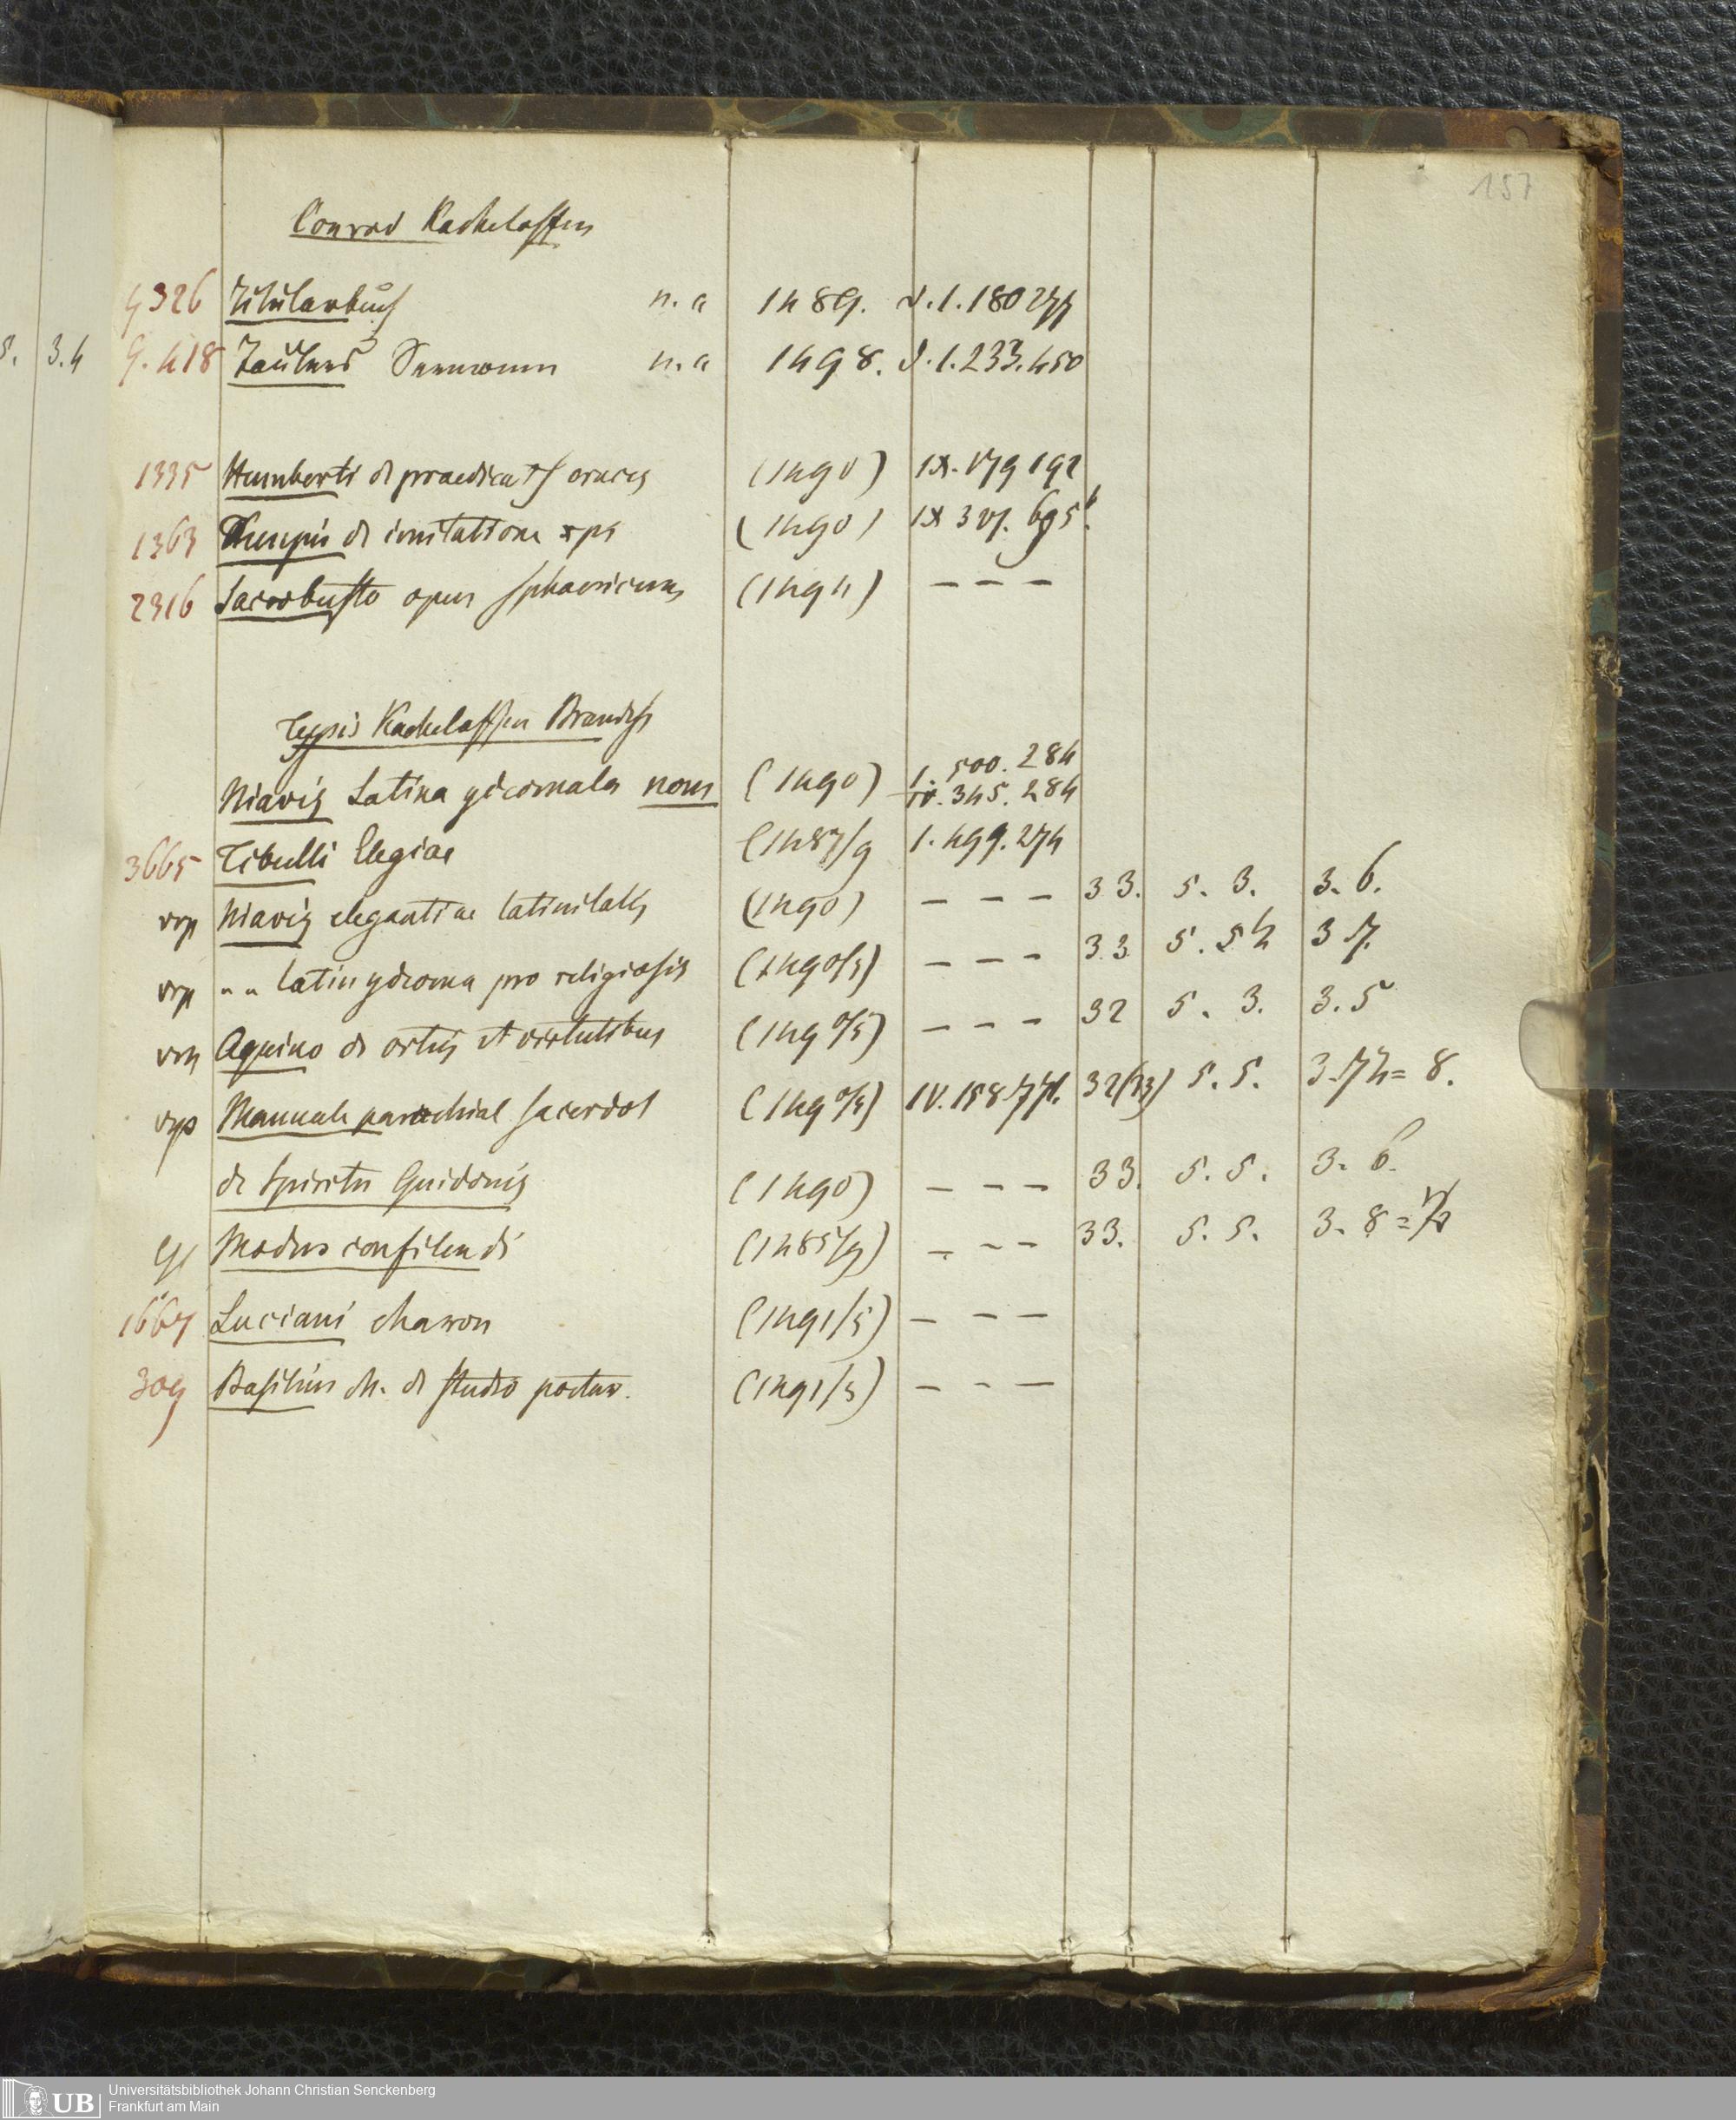 157
Conrad Kacheloffen
G 326 Titularbuch n. a 1489. d. 1. 180 277
5. 3.4
G. 418 Taulers Sermonen n. a 1498. d. 1. 233. 450
1335 Humberti de praedicat S crucis (1490) IX. 179 192
1363 Kempis de imitatione xpi (1490) IX 327. 695b.
2316 Sacrobusto opus sphaericum (1494) - - -
Typis Kacheloffen Brandis
Niavis Latina ydeomata nom (1490) 1. 500. 284
IV. 345. 284
3665 Tibulli Elegiae (1487/9 1. 499. 274
Niavis elegantiae latinitatis (1490) - - - 33. 5. 3. 3. 6.
" " latin ydeoma pro religiosis (1490/5) - - - 33 5. 5 4 3 7.
Aquino de ortus et virtutibus (1490/5) - - - 32 5. 3. 3. 5
Manuale parochial sacerdot (1490/5) IV. 158 771. 32(33) 5. 5. 3. 7 4 = 8.
de Spiritu Guidonis (1490) - - - 33. 5. 5. 3. 6.
Modus confitendi (1485/9) - - - 33. 5. 5. 3. 8 =
1667 Luciani charon (1491/5) - - -
309 Basilius M. de studio poetar. (1491/5) - - -
UB
Universitätsbibliothek Johann Christian Senckenberg
Frankfurt am Main